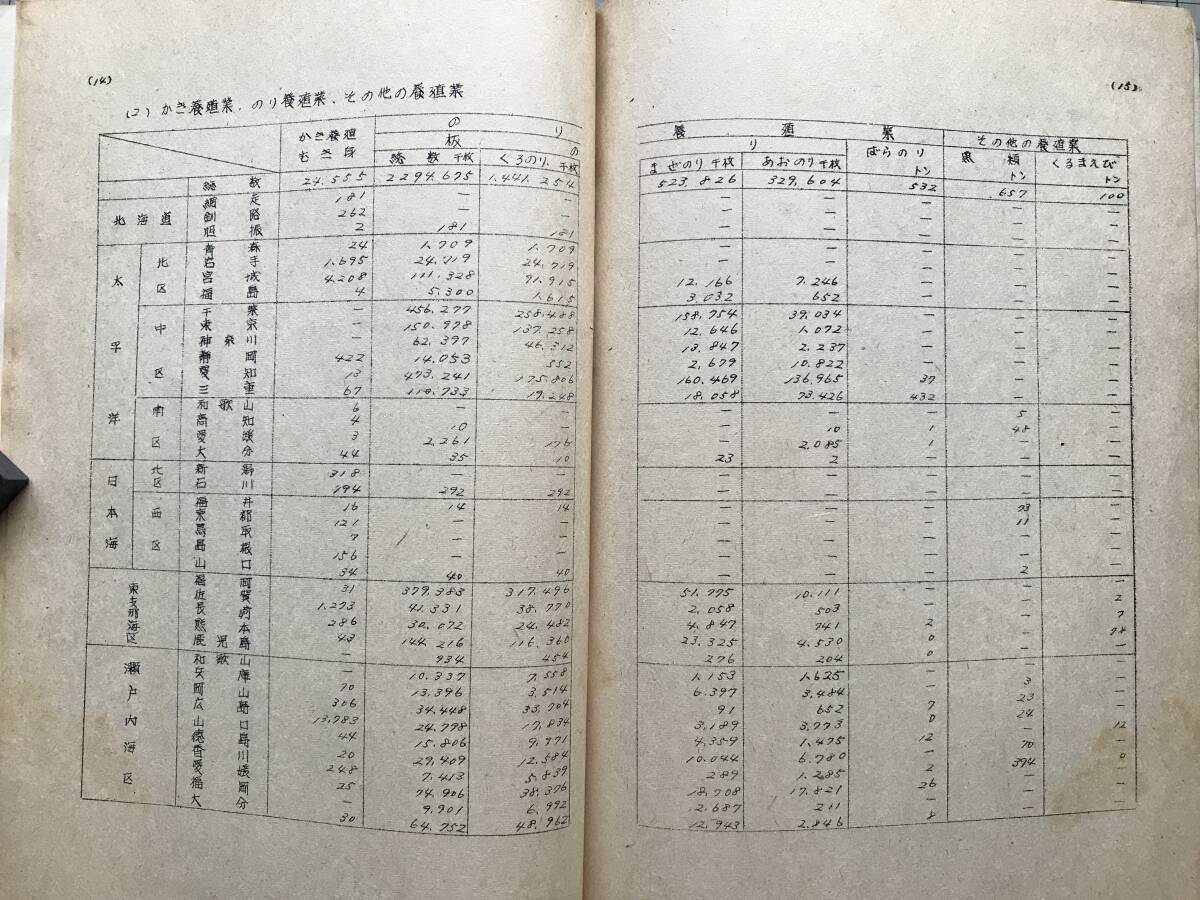 (14)
(2) かき養殖業、のり養殖業、その他の養殖業
かき養殖 むき身
の り
板
の
総数 千枚 くろのり、千枚
総数 24,555 2294,675 1,441,254
北海道 網走 181 — —
釧路 262 — —
胆振 2 181 181
太平洋 北区 青森 24 1,709 1,709
岩手 1,695 24,719 24,719
宮城 4,208 111,328 91,915
福島 4 5,300 1,615
中区 千葉 — 456,277 258,488
東京 — 150,978 137,258
神奈川 — 62,397 46,312
静岡 422 14,053 552
愛知 13 473,241 175,806
三重 67 110,733 19,248
南区 和歌山 6 — —
高知 4 10 —
愛媛 3 2,261 176
大分 44 35 10
日本海 北区 新潟 318 — —
石川 194 292 292
西区 福井 16 14 14
京都 121 — —
鳥取 7 — —
島根 156 — —
山口 34 40 40
東支那海区 福岡 31 379,383 317,496
佐賀 1,273 41,331 38,770
長崎 286 30,072 24,482
熊本 43 144,216 116,360
鹿児島 — 934 454
瀬戸内海区 和歌山 — 10,337 7,558
兵庫 70 13,396 3,514
岡山 306 34,448 33,704
広島 13,783 24,798 17,834
山口 44 15,806 9,971
徳島 20 29,409 12,584
香川 248 7,413 5,839
愛媛 25 74,906 38,376
福岡 — 9,901 6,992
大分 30 64,752 48,962
(15)
養殖業
り
その他の養殖業
まぜのり 千枚 あおのり 千枚 ばらのり トン トン くるまえび トン
523,826 329,604 532 657 100
— — — — —
— — — — —
— — — — —
— — — — —
— — — — —
12,166 7,246 — — —
3,032 652 — — —
158,754 39,034 — — —
12,646 1,072 — — —
13,847 2,237 — — —
2,679 10,822 — — —
160,469 136,965 37 — —
18,058 73,426 432 — —
— — — 5 —
— 10 1 48 —
— 2,085 1 — —
23 2 — — —
— — — — —
— — — — —
— — — 73 —
— — — 11 —
— — — — —
— — — — —
— — — 2 —
51,775 10,111 — — 2
2,058 503 — — 7
4,847 741 2 — 78
23,325 4,530 0 — —
276 204 0 — —
1,153 1,625 — 3 —
6,397 3,484 — 23 —
91 652 7 24 —
3,189 3,773 0 — 12
4,359 1,475 12 70 0
10,044 6,780 — 394
289 1,285 2 — —
18,708 17,821 26 — —
2,687 211 — — —
12,943 2,846 8 — —